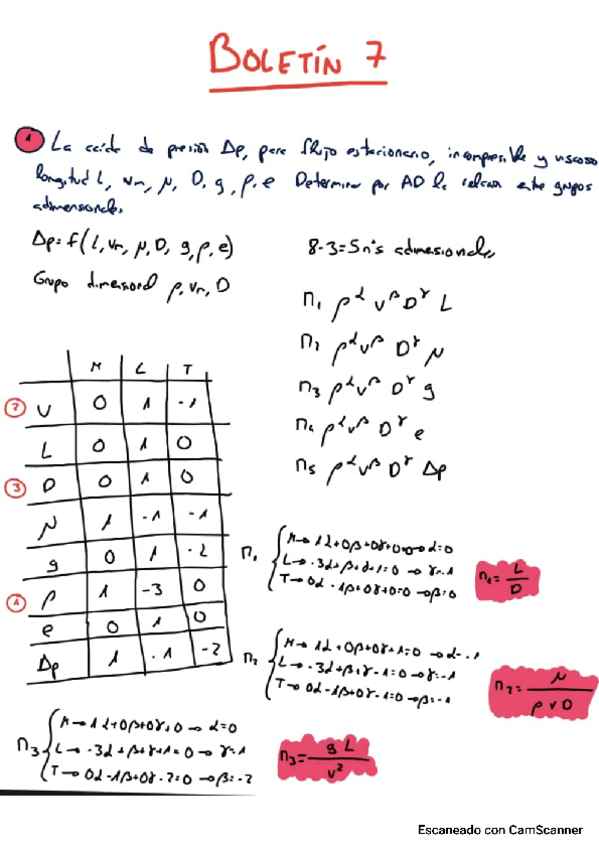 BOLETÍN 7
1 La caída de presión Δp, para flujo estacionario, incompresible y viscoso
longitud L, vm, μ, D, g, ρ, e Determinar por AD la relación entre grupos
adimensionales.
Δp = f(L, vm, μ, D, g, ρ, e)
Grupo dimensional ρ, vm, D
8-3=5 π's adimensionales
π1 ρ^α v^β D^γ L
π2 ρ^α v^β D^γ μ
π3 ρ^α v^β D^γ g
π4 ρ^α v^β D^γ e
π5 ρ^α v^β D^γ Δp
M L T
2 v 0 1 -1
L 0 1 0
3 D 0 1 0
μ 1 -1 -1
g 0 1 -2
1 ρ 1 -3 0
e 0 1 0
Δp 1 -1 -2
π1
M → 1α+0β+0γ+0=0 → α=0
L → -3α+β+γ+1=0 → γ=-1
T → 0α-1β+0γ+0=0 → β=0
π1 = L/D
π2
M → 1α+0β+0γ+1=0 → α=-1
L → -3α+β+γ-1=0 → γ=-1
T → 0α-1β+0γ-1=0 → β=-1
π2 = μ/ρvD
π3
M → 1α+0β+0γ+0 → α=0
L → -3α+β+γ+1=0 → γ=1
T → 0α-1β+0γ-2=0 → β=-2
π3 = gL/v²
Escaneado con CamScanner